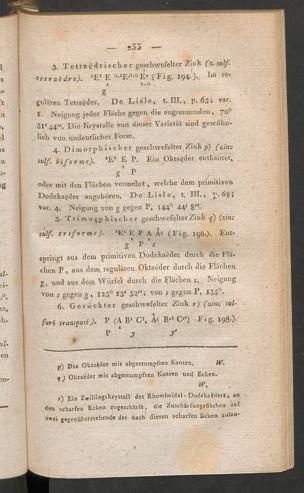 — 255 —
3. Tetraëdrischer geschwefelter Zink (z. sulf.
tetraèdre).
(Fig. 194.). Im re-
g
gulären Tetraëder. De Lisle, t. III., p. 65; var.
1. Neigung jeder Fläche gegen die angrenzenden, 70°
31′ 44″. Die Krystalle von dieser Varietät sind gewöhn-
lich von undeutlicher Form.
4. Dimorphischer geschwefelter Zink p) (zinc
sulf. biforme). ¹E¹ E P. Ein Oktaëder enthäutet,
g P
oder mit den Flächen vermehrt, welche dem primitiven
Dodekaëder angehören. De Lisle, t. III., 
var. 4. Neigung von g gegen P, 144° 44′ 8″.
5. Trimorphischer geschwefelter Zink q) (zinc
sulf. triforme). ¹E¹ E P A (Fig. 196.). Ent-
g P s
springt aus dem primitiven Dodekaëder durch die Flä-
chen P, aus dem regulären Oktaëder durch die Flächen
g, und aus dem Würfel durch die Flächen s. Neigung
von s gegen g, 125° 15′ 52″; von s gegen P, 135°.
6. Gerüchter geschwefelter Zink r) (zinc sul-
furé transposé). P Fig. 198.).
P y y′
p) Das Oktaëder mit abgestumpften Kanten. W.
q) Oktaëder mit abgestumpften Kanten und Ecken.
W.
r) Ein Zwillingskrystall des Rhomboidal-Dodekaëders, an
den scharfen Ecken zugeschärft, die Zuschärfungsflächen auf
zwei gegenüberstehende der nach diesen scharfen Ecken zulau-